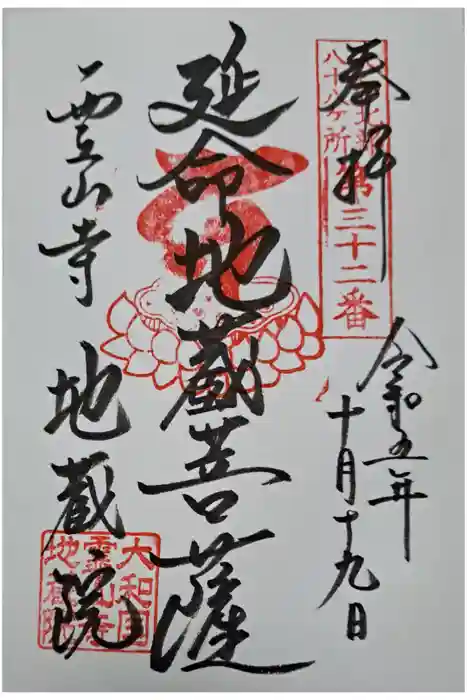 奉拝
大和北部
八十八ヶ所
第三十二番
令和五年
十月十九日
延命地蔵菩薩
霊山寺
地蔵院
大和国
靈山寺
地蔵院